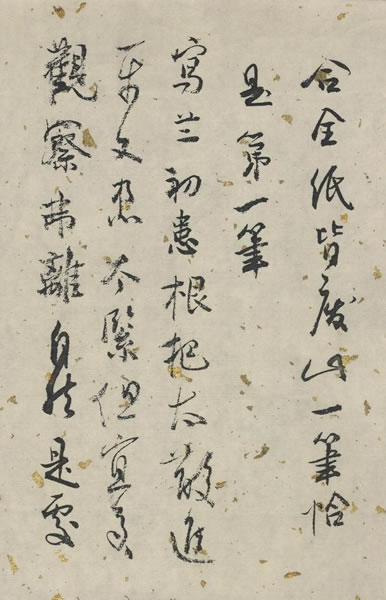 合全紙皆廢此一筆恰
是第一筆
寫兰初患根把太散進
一步又患太緊但宜多
觀察離自然是處